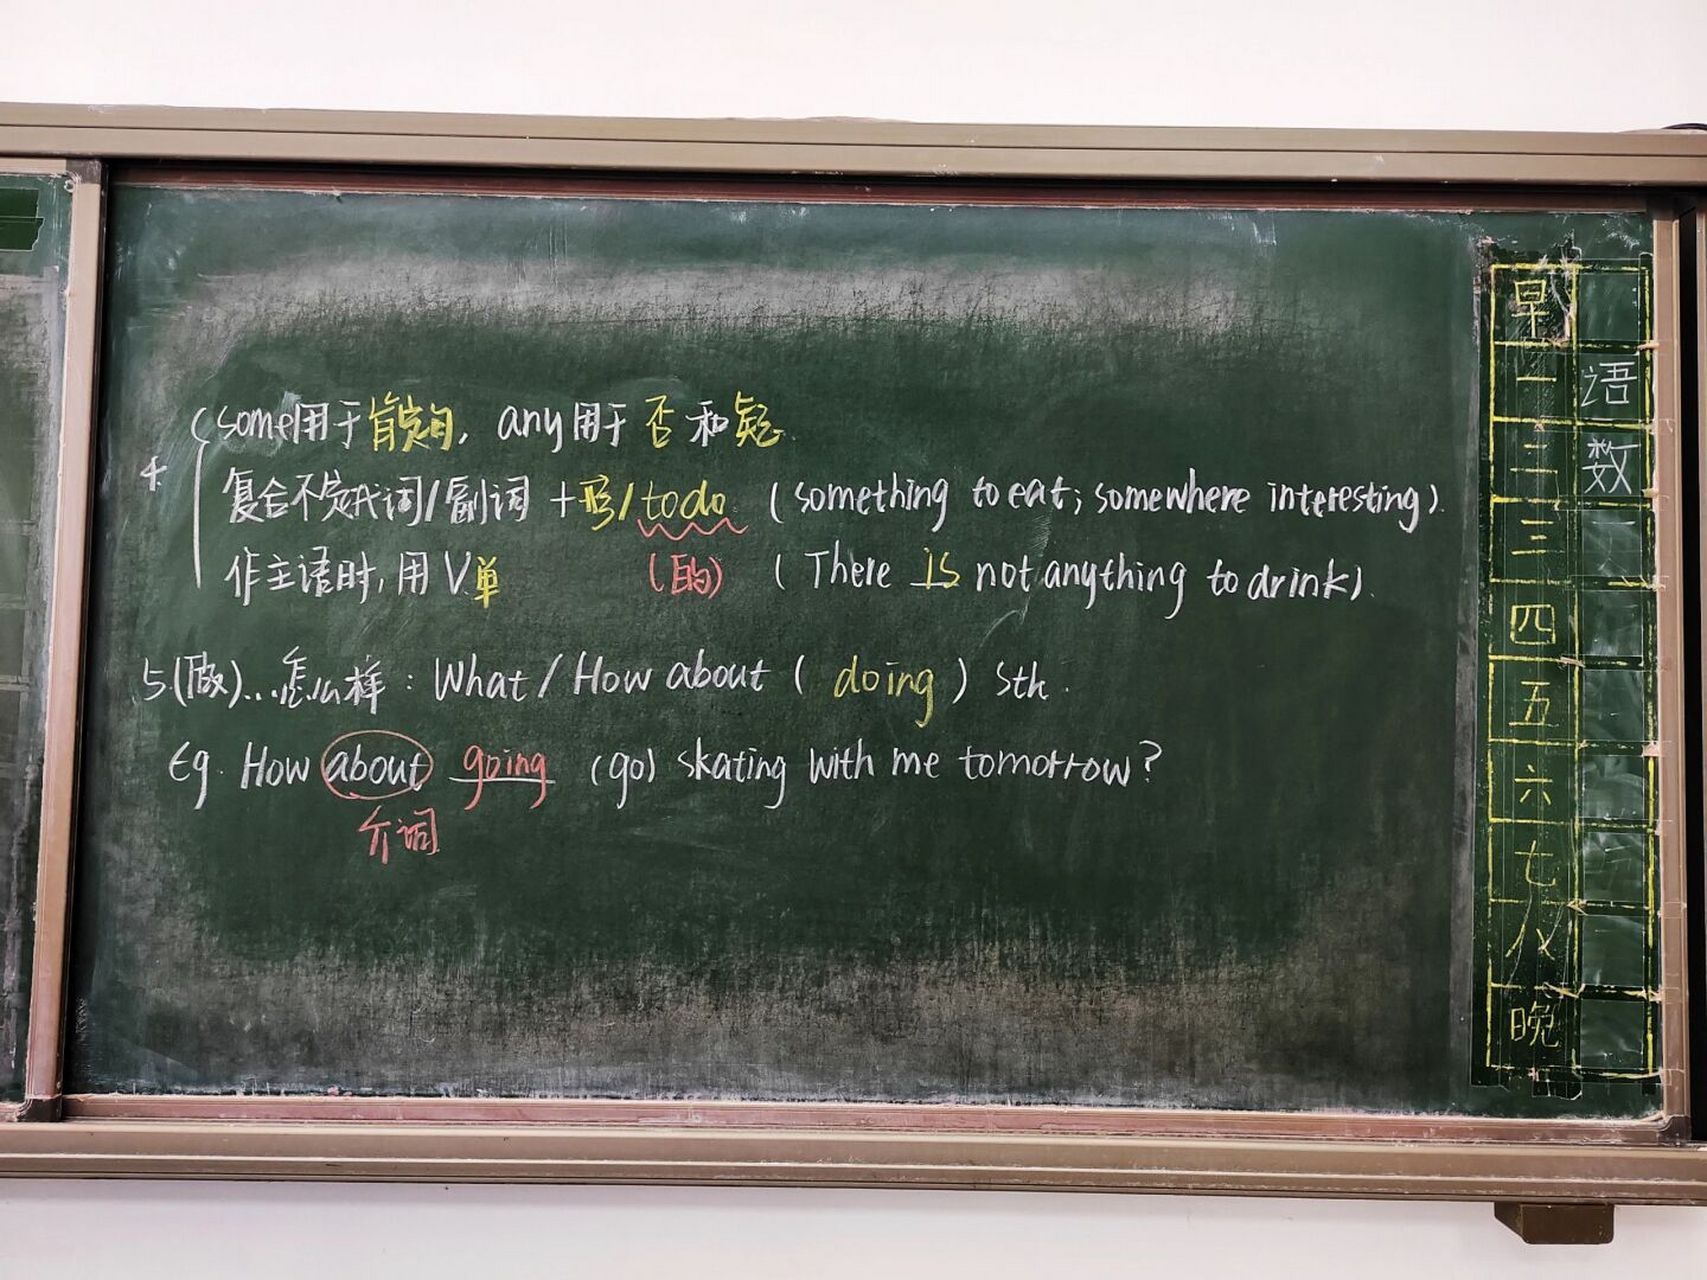 4. some用于肯定句, any用于 否 和 疑.
复合不定代词/副词 + 形/to do (something to eat; somewhere interesting).
作主语时, 用 V.单 (目的) ( There is not anything to drink).
5.(做)...怎么样: What / How about ( doing ) sth.
Eg. How about going (go) skating with me tomorrow?
介词
早
一 语
二 数
三
四
五
六
七
八
晚